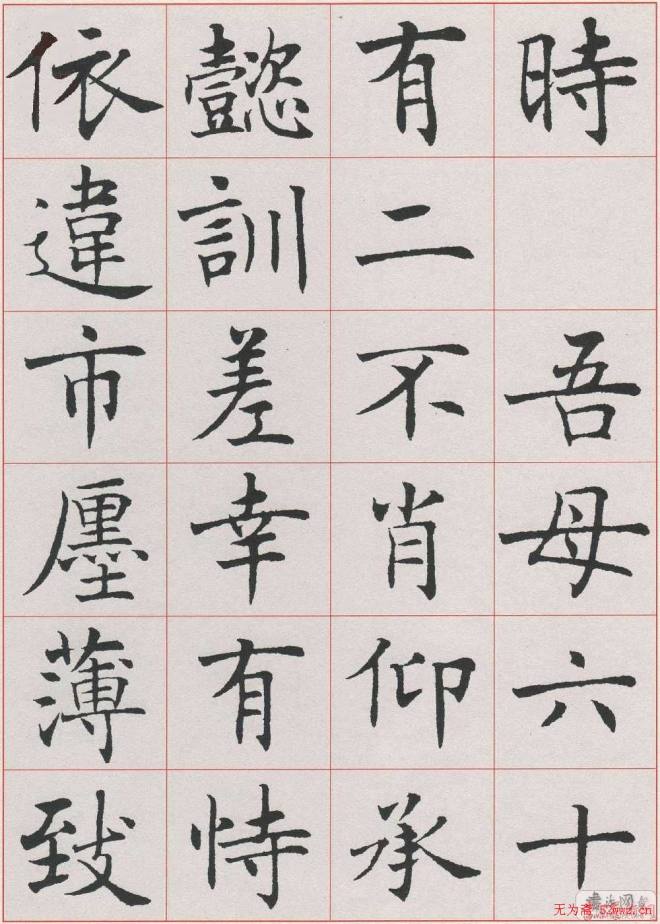 時　吾母六十
有二不肖仰承
懿訓差幸有恃
依違市廛薄致
无为斋 53wwz.cn